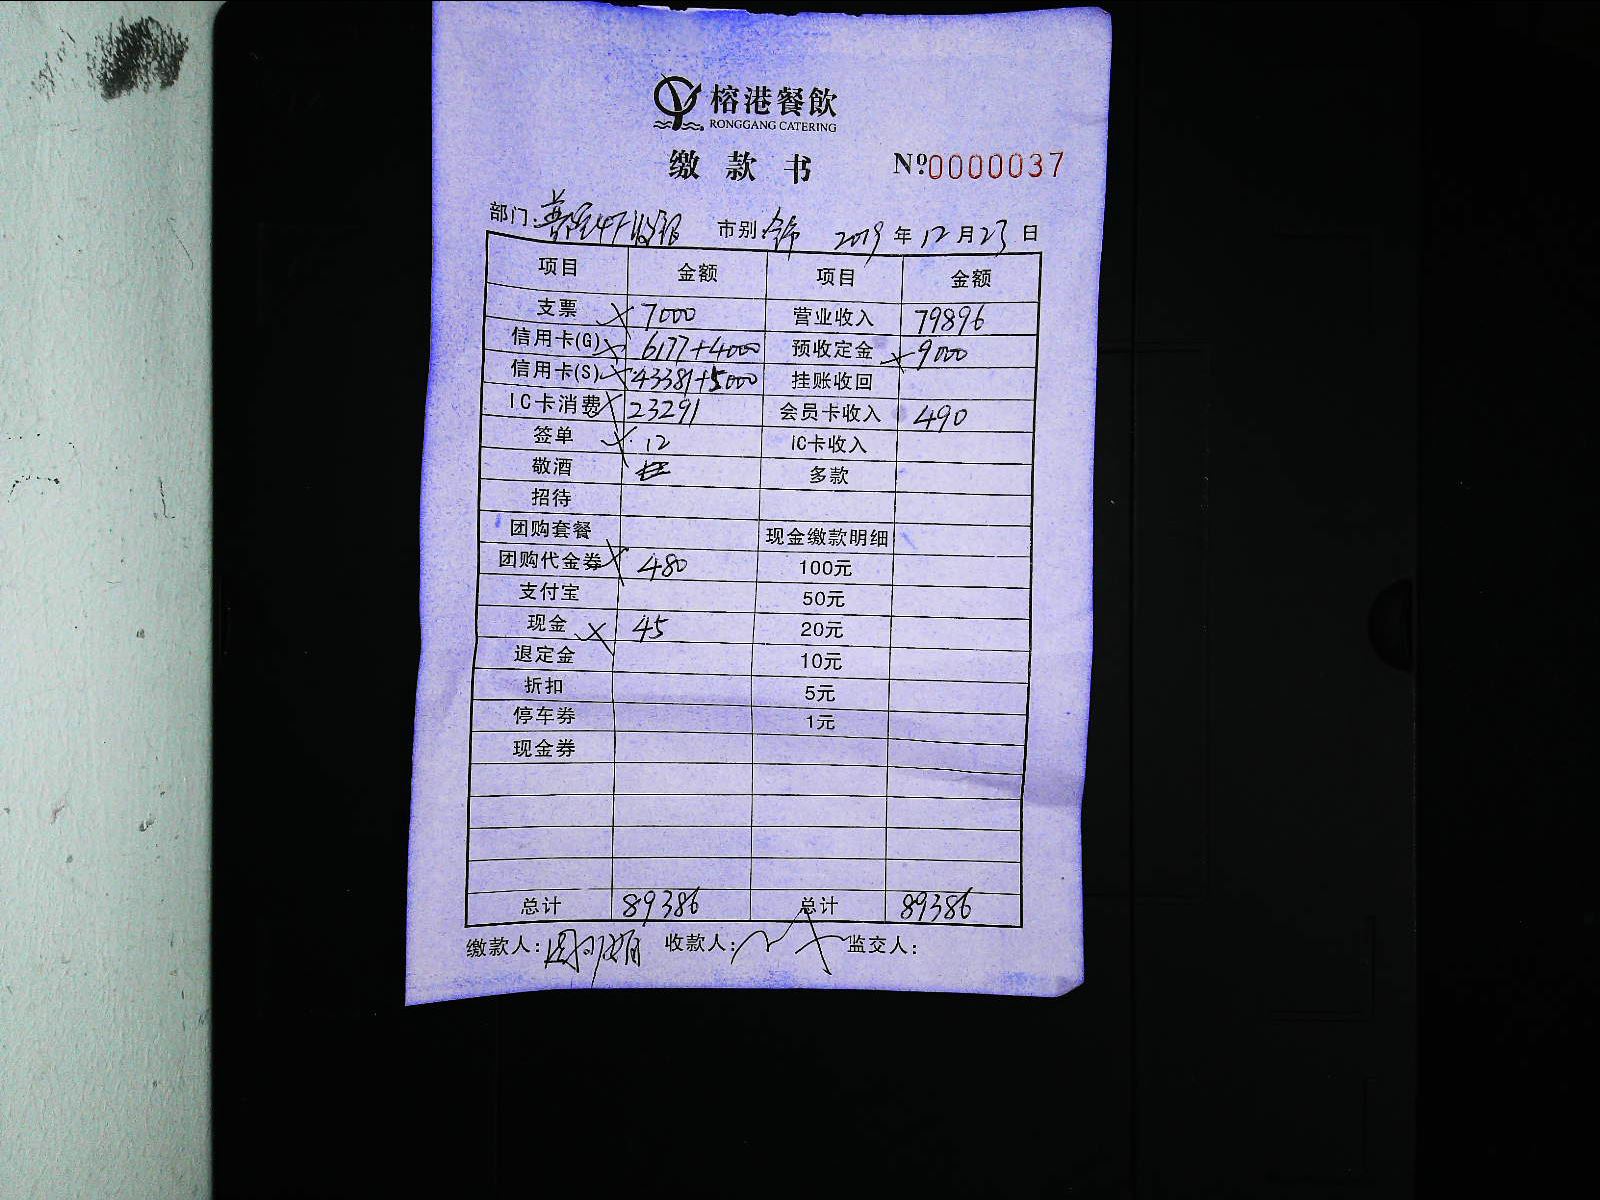 榕港餐飲
RONGGANG CATERING
缴款书 №0000037
部门: 4F收银 市别: 2019年12月23日
项目 金额 项目 金额
支票 7000 营业收入 79896
信用卡(G) 6177+4000 预收定金 9000
信用卡(S) 43381+5000 挂账收回
IC卡消费 23291 会员卡收入 490
签单 12 IC卡收入
敬酒 多款
招待
团购套餐 现金缴款明细
团购代金券 480 100元
支付宝 50元
现金 45 20元
退定金 10元
折扣 5元
停车券 1元
现金券
总计 89386 总计 89386
缴款人: 收款人: 监交人: